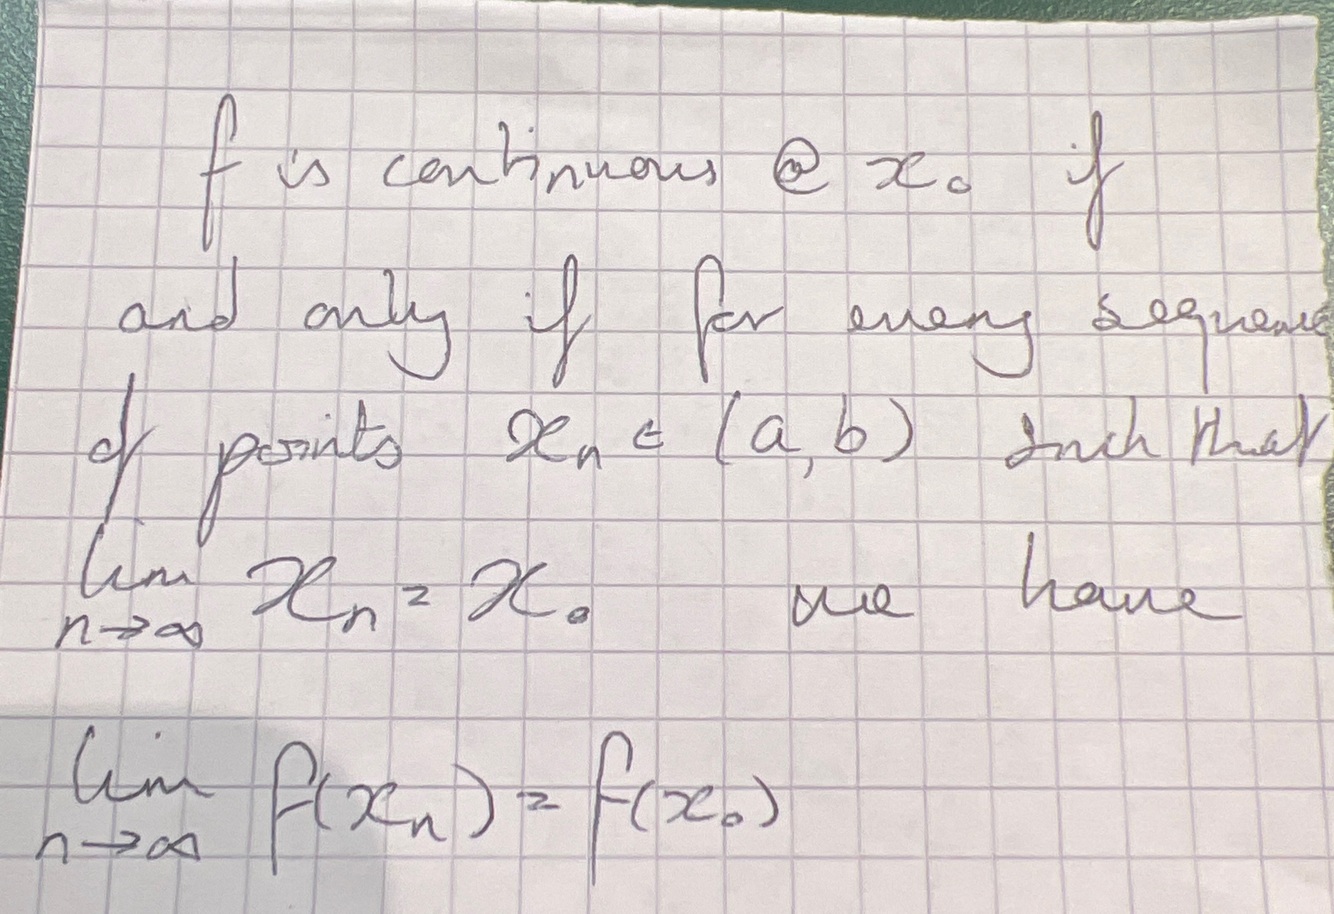 f is continuous @ x₀ if
and only if for every sequence
of points xₙ ∈ (a, b) such that
lim n→∞ xₙ = x₀ we have
lim n→∞ f(xₙ) = f(x₀)